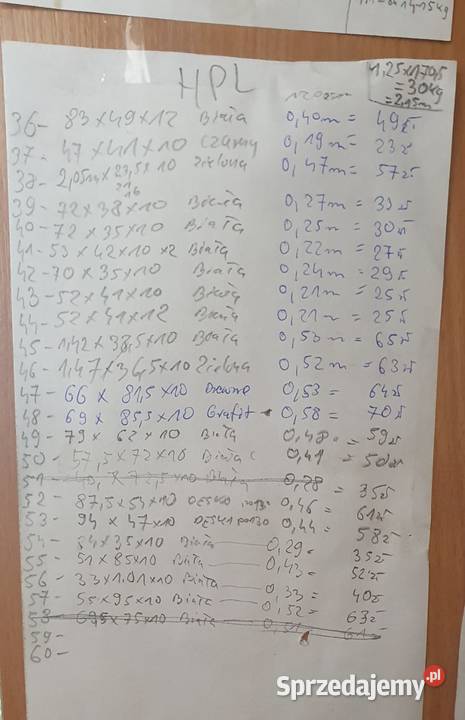 HPL
1,25x1795
=30kg
=2,15m
36- 83x49x12 Biała 0,40m= 49zł
37- 47x41x10 Czarny 0,19m= 23zł
38- 2,05mx23,5x10 Zielona 0,47m= 57zł
39-72x38x10 Biała 0,27m= 33zł
40-72x35x10 Biała 0,25m= 30zł
41-53x42x10x2 Biała 0,22m= 27zł
42-70x35x10 Biała 0,24m= 29zł
43-52x41x10 Biała 0,21m= 25zł
44-52x41x12 Biała 0,21m= 25zł
45-1,42x38,5x10 Biała 0,53m= 65zł
46-1,47x36,5x10 Zielona 0,52m= 63zł
47-66x81,5x10 Drewno 0,53= 64zł
48-69x85,5x10 Grafit 0,58= 70zł
49-79x62x10 Biała 0,48= 59zł
50-57,5x72x10 Biała 0,41= 50zł
51- 0,28= 35zł
52-87,5x54x10 0,46= 61zł
53-94x47x10 0,44= 58zł
54-84x35x10 Biała 0,29= 35zł
55-51x85x10 Biała 0,43= 52zł
56-33x1,01x10 Biała 0,33= 40zł
57-55x95x10 Biała 0,52= 63zł
58-69,5x75x10 Biała 0,51 61zł
59-
60-
Sprzedajemy.pl